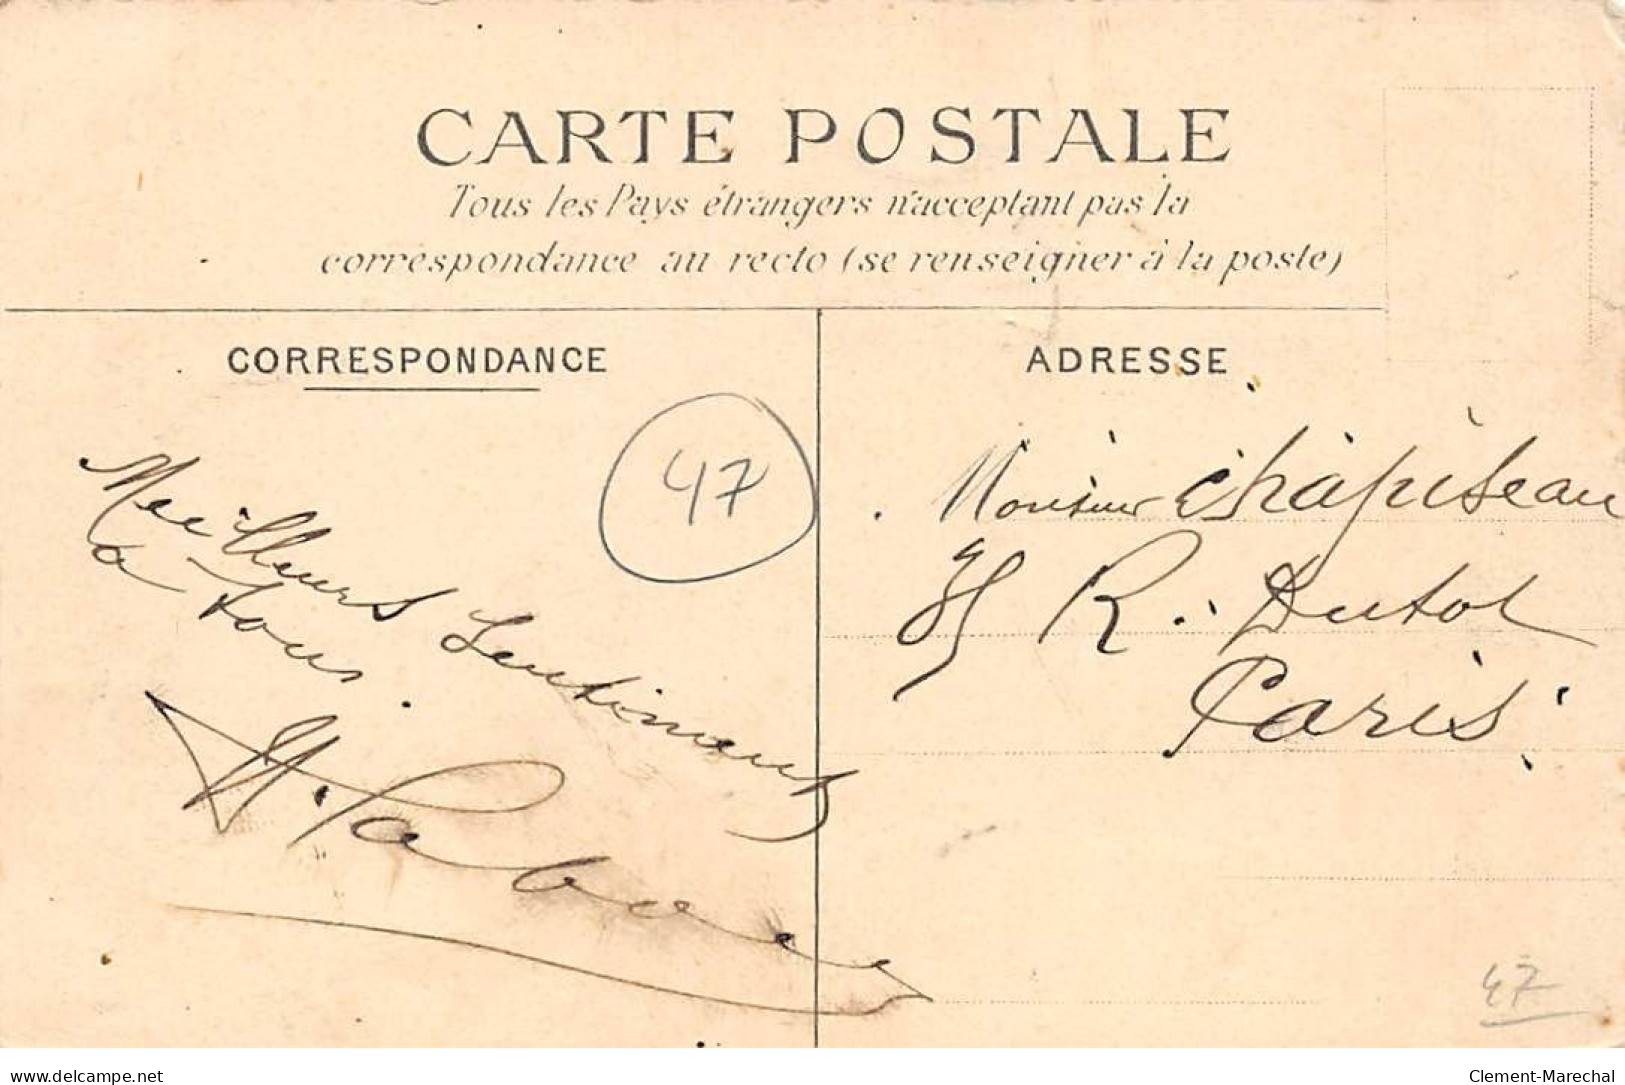 CARTE POSTALE
Tous les Pays étrangers n'acceptant pas la
correspondance au recto (se renseigner à la poste)
CORRESPONDANCE
ADRESSE
47
Meilleurs Sentiments
a tous.
Monsieur Chapiseau
R. Dutot
Paris
47
delcampe.net
Clement-Marechal